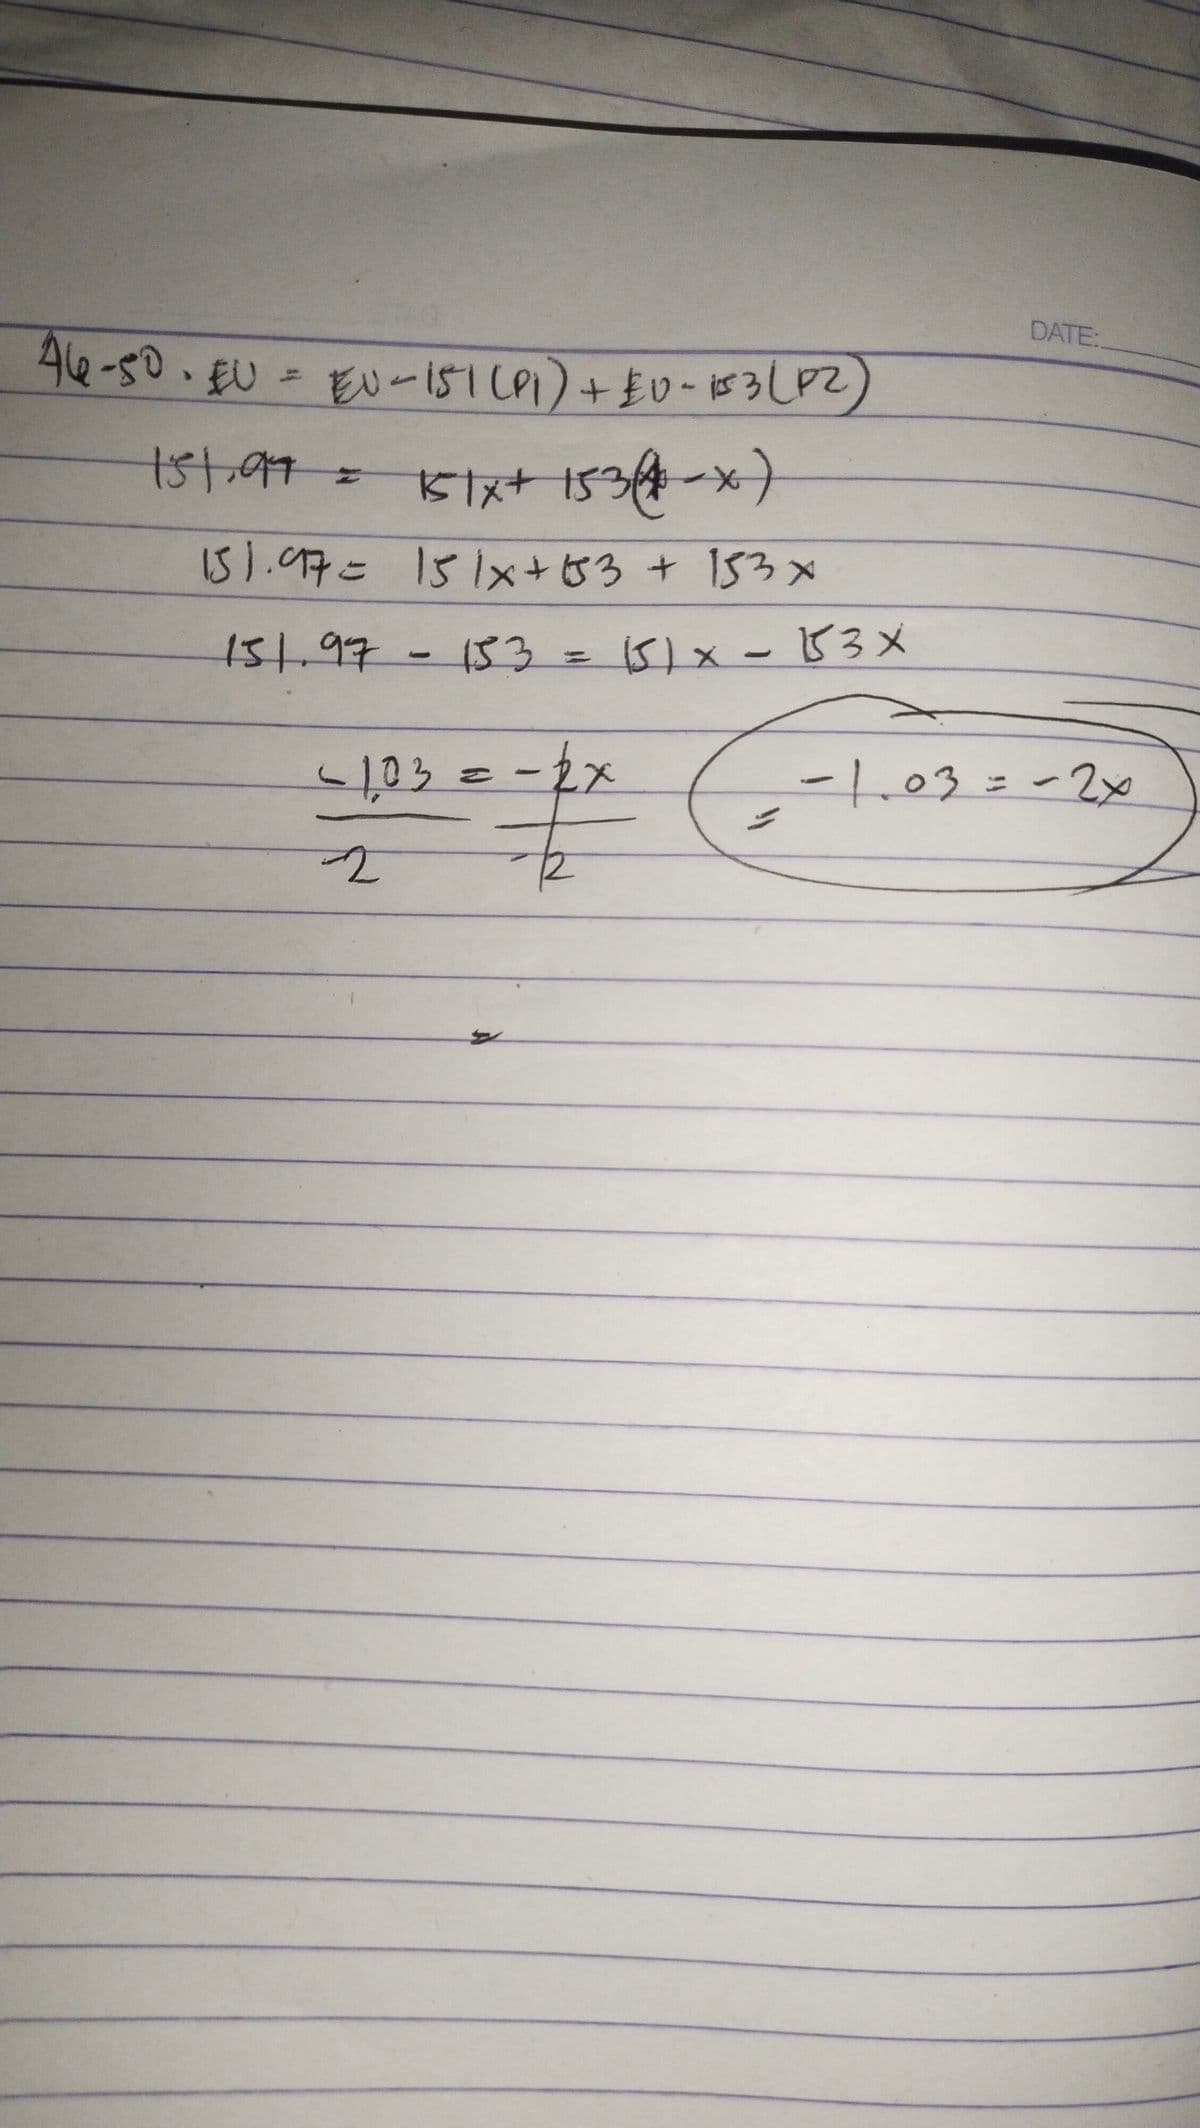 DATE:
46-50. EU = EU-151(P1) + EU-153(P2)
151.97 = 151x + 153(1-x)
151.97 = 151x + 153 + 153x
151.97 - 153 = 151x - 153x
-1.03 = -2x = -1.03 = -2x
-2 -2
=